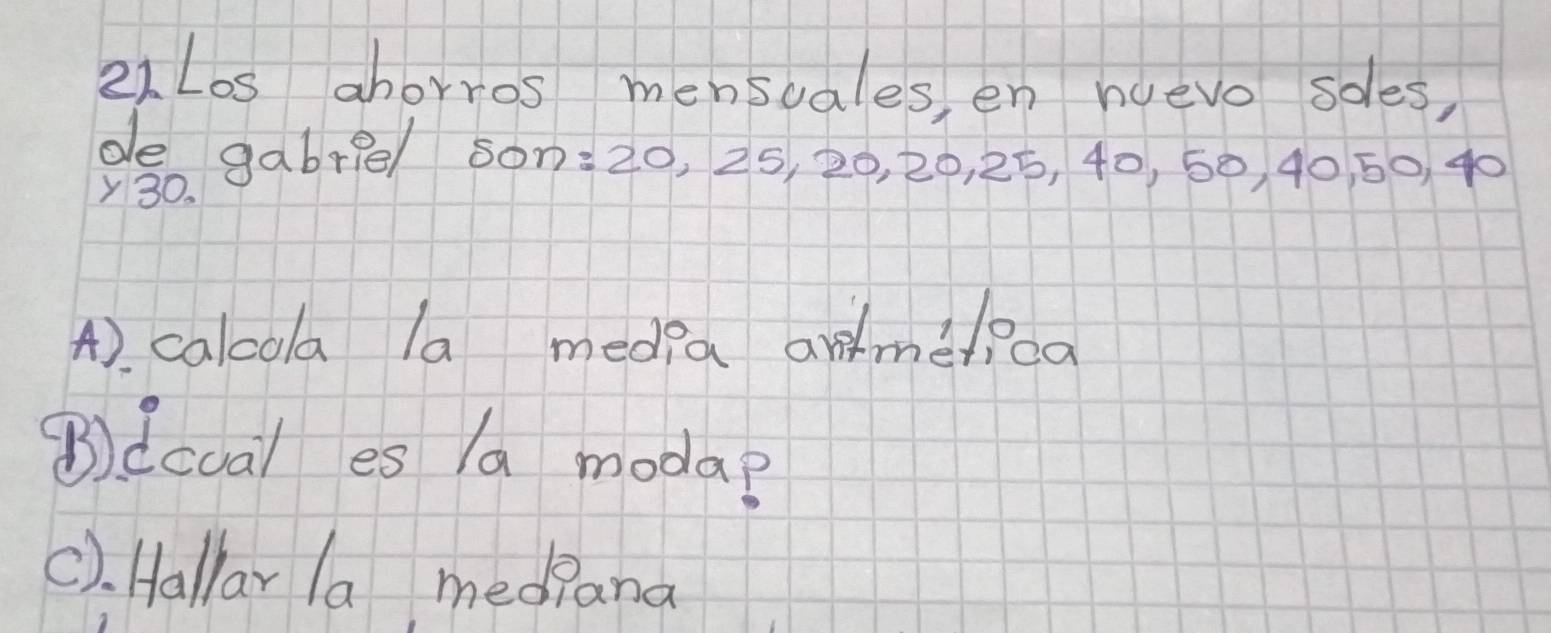 2). Los ahorros mensuales, en nuevo soles,
de gabriel son: 20, 25, 20, 20, 25, 40, 50, 40, 50, 40
y 30.
A). calcula la media aritmética
B). ¿cuál es la moda?
C). Hallar la mediana